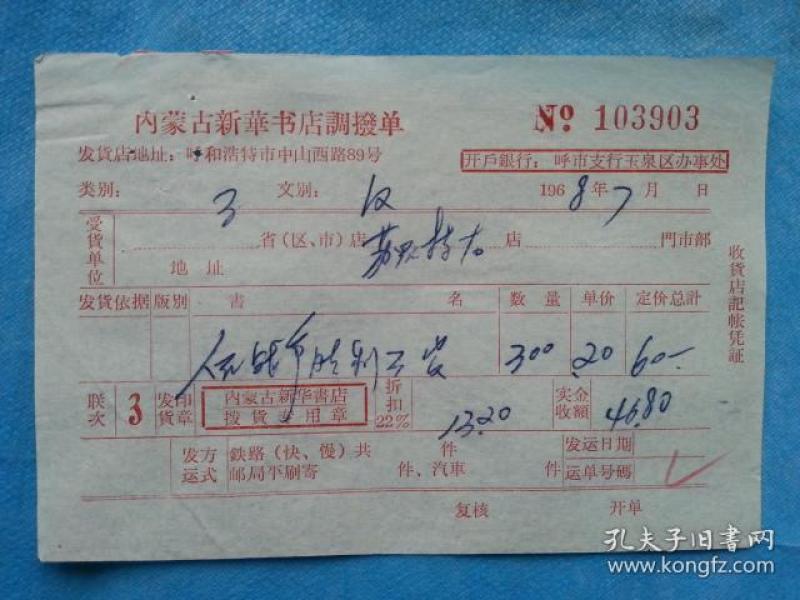 内蒙古新華书店調撥单
№ 103903
发货店地址：呼和浩特市中山西路89号
开戶銀行：呼市支行玉泉区办事处
类别： 3 文别： 汉 1968年7月 日
受货单位 省(区、市)店 店 門市部
地址
发货依据 版别 書名 数量 单价 定价总計
人民战争胜利万岁 300 .20 60-
联次 3 发货印章 内蒙古新华書店撥货专用章 折扣22% 13.20 实收金額 46.80
发运方式 鉄路（快、慢）共 件 发运日期
邮局平刷寄 件、汽車 件 运单号碼
复核 开单
收货店記帐凭証
孔夫子旧书网
www.kongfz.com